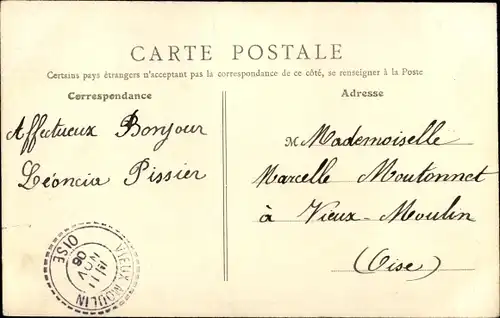 CARTE POSTALE
Certains pays étrangers n'acceptant pas la correspondance de ce côté, se renseigner à la Poste
Correspondance
Adresse
Affectueux Bonjour
Léoncia Pissier
M Mademoiselle
Marcelle Moutonnet
à Vieux-Moulin
(Oise)
VIEUX-MOULIN
OISE
11
NOV
06